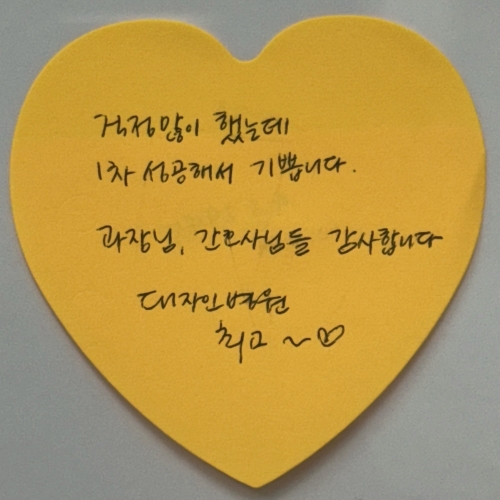 걱정많이 했는데
1차 성공해서 기쁩니다.
과장님, 간호사님들 감사합니다
대자인병원
최고 ~♡